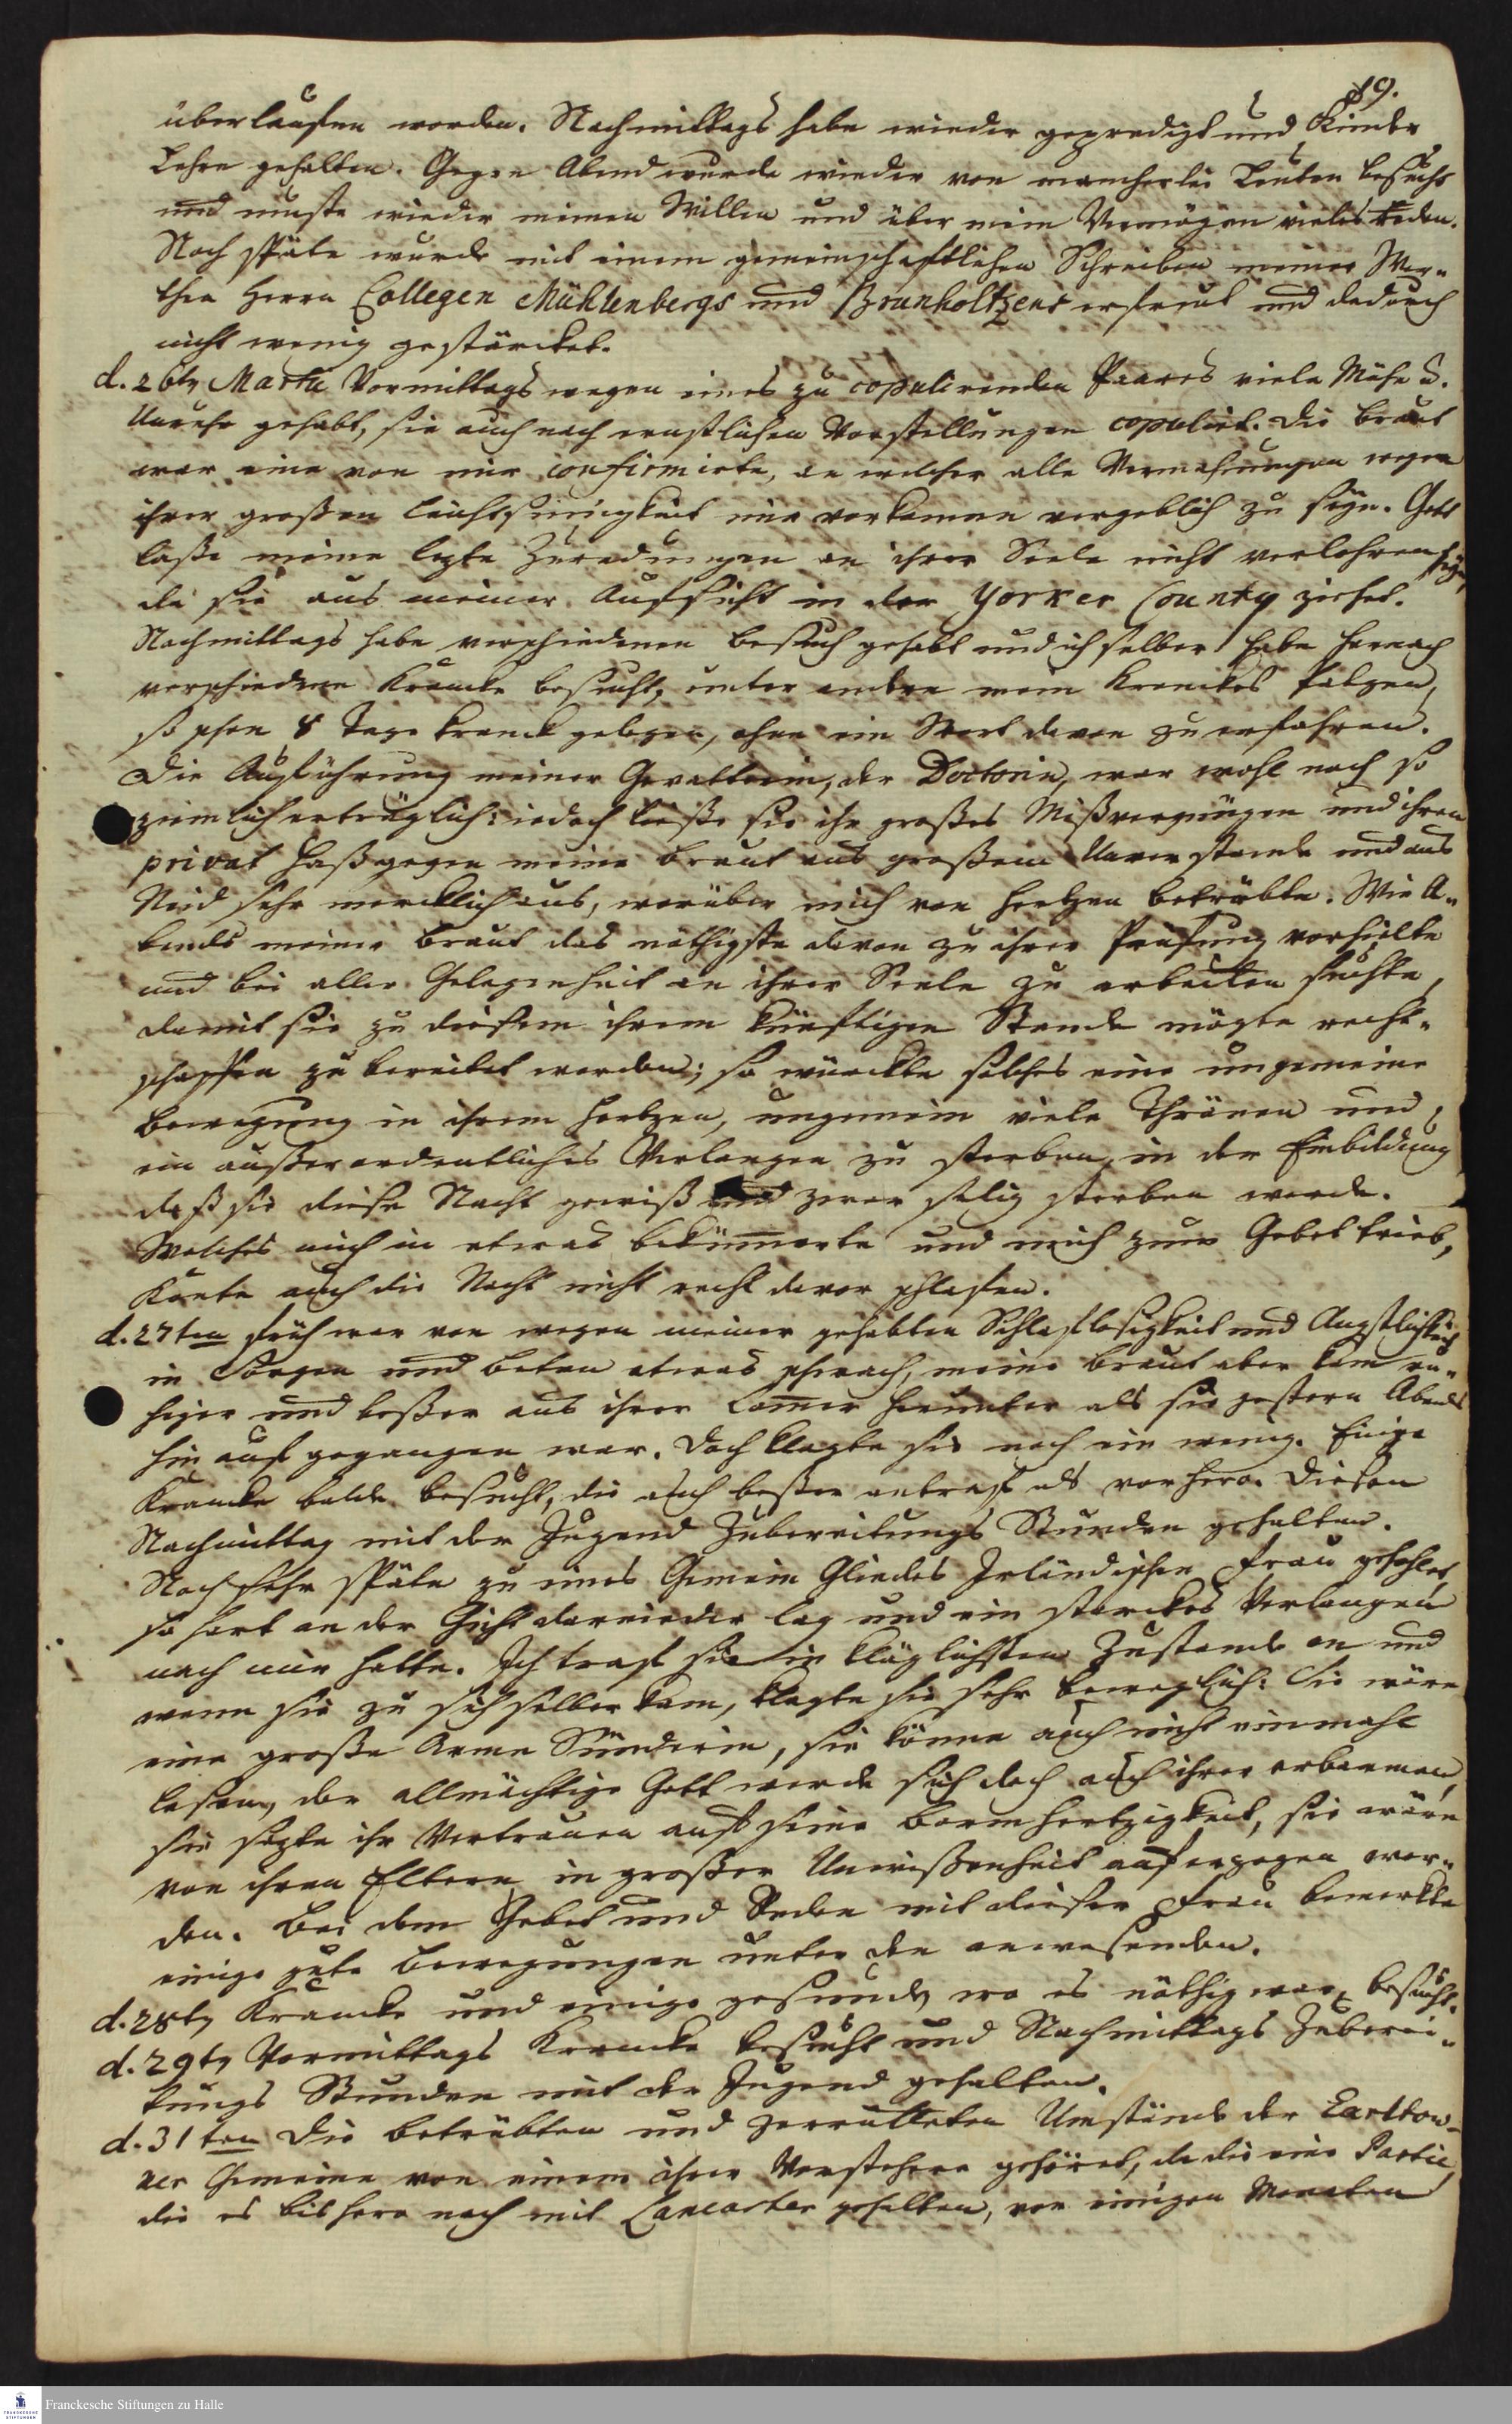 19.
überlaufen worden. Nachmittags habe wieder gepredigt und Kinder
Lehre gehalten. Gegen Abend wurde wieder von mancherlei Leuten besucht
und muste wieder meinen Willen und über mein Vermögen vieles reden.
Noch späte wurde mit einem gemeinschaftlichen Schreiben meiner Wer-
then Herrn Collegen Mühlenbergs und Brunholtzens erfreut und dadurch
nicht wenig gestärcket.
d. 26ten Martii Vormittags wegen eines zu copulirenden Paares viele Mühe u.
Unruhe gehabt, sie auch nach ernstlichen Vorstellungen copulirt. Die Braut
war eine von mir confirmirte, an welcher alle Vermahnungen wegen
ihrer großen Leichtsinnigkeit mir vorkamen vergeblich zu seyn. Gott
laße meine lezte Zuredungen an ihrer Seele nicht verlohren seyn,
da sie aus meiner Aufsicht in der Yorker County ziehet.
Nachmittags habe verschiedenen Besuch gehabt und ich selber habe hernach
verschiedene Krancke besucht, unter andern mein kranckes
so schon 8 Tage kranck gelegen, ohne ein Wort davon zu erfahren.
Die Aufführung meiner Gevatterin, der Doctorin, war wohl noch so
ziemlich erträglich: iedoch ließe sie ihr großes Mißvergnügen und ihren
privat Haß gegen meine Braut aus großem Unverstande und aus
Neid sehr mercklich aus, worüber mich von Hertzen betrübte. Wie A-
bends meiner Braut das nöthigste davon zu ihrer Prüfung vorhielte
und bei aller Gelegenheit an ihrer Seele zu arbeiten suchte,
damit sie zu diesem ihrem künftigen Stande mögte recht-
schaffen zu bereitet werden; so würckte solches eine ungemeine
Bewegung in ihrem Hertzen, ungemein viele Thränen und
ein außerordentliches Verlangen zu sterben, in der Einbildung
daß sie diese Nacht gewiß und zwar selig sterben werde.
Welches mich in etwas bekümmerte und mich zum Gebet trieb,
konte auch die Nacht nicht recht davor schlafen.
d. 27ten früh war von wegen meiner gehabten Schlaflosigkeit und Ängstlichkeit
in Sorgen und Beten etwas schwach, meine Braut aber kam ru-
higer und beßer aus ihrer Cammer herunter als sie gestern Abends
hin auf gegangen war. Doch klagte sie noch ein wenig. Einige
Krancke balde besucht, die auch beßer antraf als vorhero. Diesen
Nachmittag mit der Jugend Zubereitungs Stunden gehalten.
Noch sehr späte zu eines Gemein Gliedes Irländischen Frau gehohlet,
so hart an der Gicht darnieder lag und ein starckes Verlangen
nach mir hatte. Ich traf sie in kläglichsten Zustande an und
wenn sie zu sich selber kam, klagte sie sehr beweglich: Sie wäre
eine große Arme Sünderin, sie könne auch nicht einmahl
lesen, der allmächtige Gott werde sich doch auch ihrer erbarmen,
sie sezte ihr Vertrauen auf seine Barmhertzigkeit, sie wäre
von ihren Eltern in großer Unwißenheit auferzogen wor-
den. Bei dem Gebet und Reden mit dieser Frau bemerkte
einige gute Bewegungen unter den anwesenden.
d. 28ten Krancke und einige gesunde, wo es nöthig war, besucht.
d. 29ten Vormittags Krancke besucht und Nachmittags Zuberei-
tungs Stunden mit der Jugend gehalten.
d. 31ten Die betrübten und zerrütteten Umstände der Earltow-
ner Gemeine von einem ihrer Vorsteher gehöret, da die eine Partie,
die es bishero noch mit Lancaster gehalten, vor einigen Monaten
Franckesche Stiftungen zu Halle